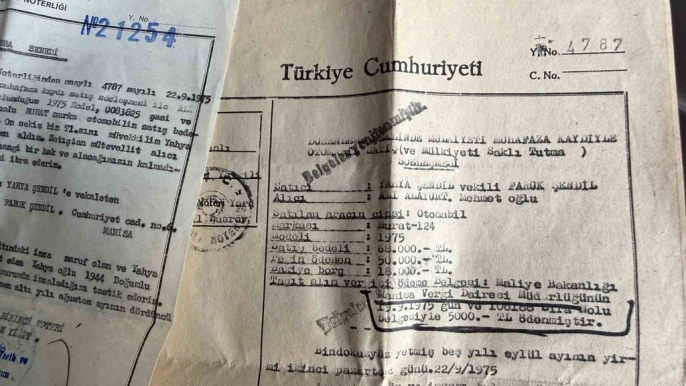 NOTERLİĞİ
Y. No.
№21254
SENEDİ
Noterliğinden onaylı 4787 sayılı 22.9.1975
muhafaza kaydı satış sözleşmesi ile
1975 Model, 0083825 şasi ve
MURAT marka otomobilin satış bede-
On sekiz bin TL.sını müvekilim Yahya
aldım. Satıştan mütevellit alıcı
bir hak ve alacağımısın kalmadı-
ibra ederim.
YAHYA ŞENDİL 'e vekaleten
FARUK ŞENDİL . Cumhuriyet cad. no.6.
MANİSA
imza maruf olan ve Yahya
eden Yahya oğlu 1944 Doğumlu
imzaladığını tastik ederim.
altı yılı ağustos ayının dördüncü
NOTERİ
Türkiye Cumhuriyeti
Y. No. 4787
C. No.
MÜLKİYETİ MUHAFAZA KAYDİYLE
(ve Mülkiyeti Saklı Tutma )
SÖZLEŞMESİ
Satıcı : YAHYA ŞENDİL vekili FARUK ŞENDİL
Alıcı : ALİ ALAYURT, Mehmet oğlu
Satılan aracın cinsi: Otomobil
Markası : Murat-124
Modeli : 1975
Satış bedeli : 68.000.- TL.
Peşin ödenen : 50.000.- TL.
Bakiye borç : 18.000.- TL.
Taşıt alım vergisi ödeme Belgesi: Maliye Bakanlığı
Manisa Vergi Dairesi Müdürlüğünün
19.9.1975 gün ve sıra Nolu
belgesiyle 5000.- TL ödenmiştir.
Bindokuzyüz yetmiş beş yılı eylül ayının yir-
mi ikinci pazartesi günü.22/9/1975